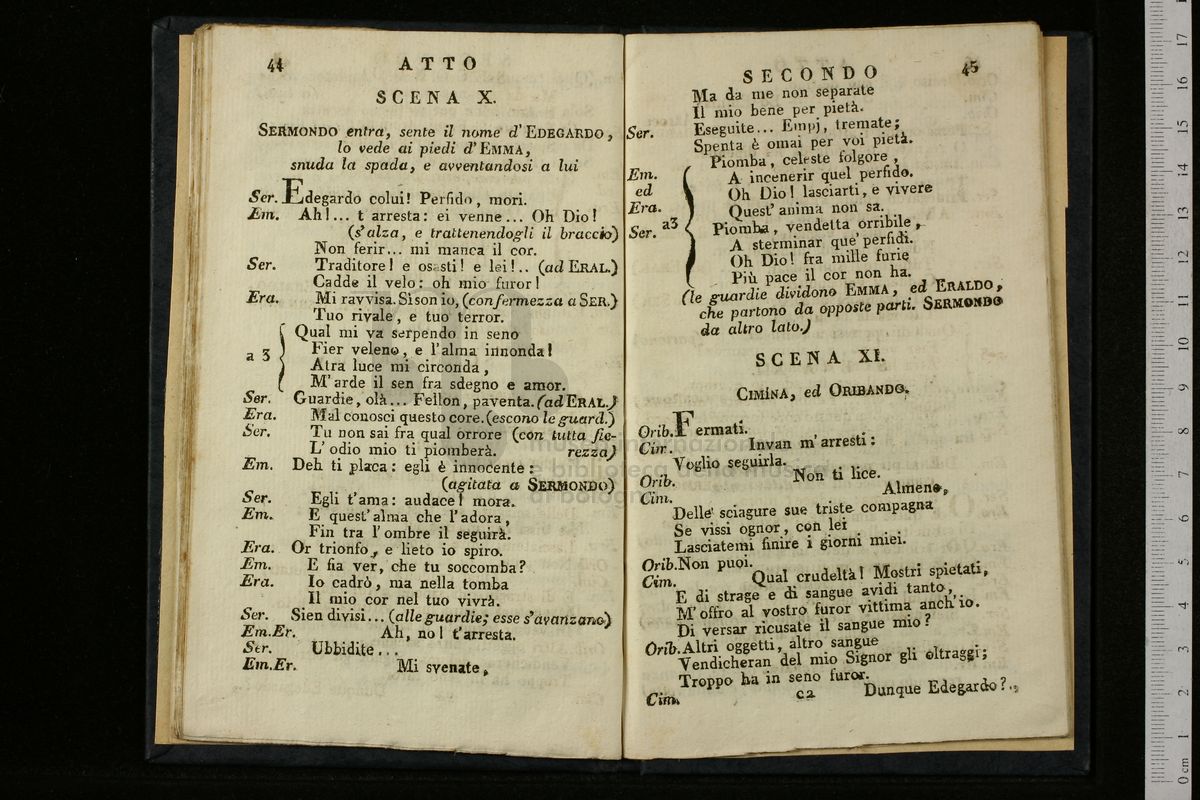 44
ATTO
SCENA X.
SERMONDO entra, sente il nome d'EDEGARDO,
lo vede ai piedi d'EMMA,
snuda la spada, e avventandosi a lui
Ser. Edegardo colui! Perfido, mori.
Em. Ah!... t'arresta: ei venne... Oh Dio!
(s'alza, e trattenendogli il braccio)
Non ferir... mi manca il cor.
Ser. Traditore! e osasti! e lei!.. (ad ERAL.)
Cadde il velo: oh mio furor!
Era. Mi ravvisa. Si son io, (con fermezza a SER.)
Tuo rivale, e tuo terror.
a 3
Qual mi va serpendo in seno
Fier veleno, e l'alma innonda!
Atra luce mi circonda,
M'arde il sen fra sdegno e amor.
Ser. Guardie, olà... Fellon, paventa. (ad ERAL.)
Era. Mal conosci questo core. (escono le guard.)
Ser. Tu non sai fra qual orrore (con tutta fie-
L'odio mio ti piomberà. rezza)
Em. Deh ti placa: egli è innocente:
(agitata a SERMONDO)
Ser. Egli t'ama: audace! mora.
Em. E quest'alma che l'adora,
Fin tra l'ombre il seguirà.
Era. Or trionfo, e lieto io spiro.
Em. E fia ver, che tu soccomba?
Era. Io cadrò, ma nella tomba
Il mio cor nel tuo vivrà.
Ser. Sien divisi... (alle guardie; esse s'avanzano)
Em.Er. Ah, no! t'arresta.
Ser. Ubbidite...
Em.Er. Mi svenate,
SECONDO
45
Ma da me non separate
Il mio bene per pietà.
Ser. Eseguite... Empj, tremate;
Spenta è omai per voi pietà.
Em.
ed
Era.
Piomba, celeste folgore,
A incenerir quel perfido.
Oh Dio! lasciarti, e vivere
Quest'anima non sa.
a3
Ser. Piomba, vendetta orribile,
A sterminar que' perfidi.
Oh Dio! fra mille furie
Più pace il cor non ha.
(le guardie dividono EMMA, ed ERALDO,
che partono da opposte parti. SERMONDO
da altro lato.)
SCENA XI.
CIMINA, ed ORIBANDO.
Orib. Fermati.
Cim. Invan m'arresti:
Voglio seguirla.
Orib. Non ti lice.
Cim. Almeno,
Delle sciagure sue triste compagna
Se vissi ognor, con lei
Lasciatemi finire i giorni miei.
Orib. Non puoi.
Cim. Qual crudeltà! Mostri spietati,
E di strage e di sangue avidi tanto,
M'offro al vostro furor vittima anch'io.
Di versar ricusate il sangue mio?
Orib. Altri oggetti, altro sangue
Vendicheran del mio Signor gli oltraggi;
Troppo ha in seno furor.
Cim. Dunque Edegardo?..
c2